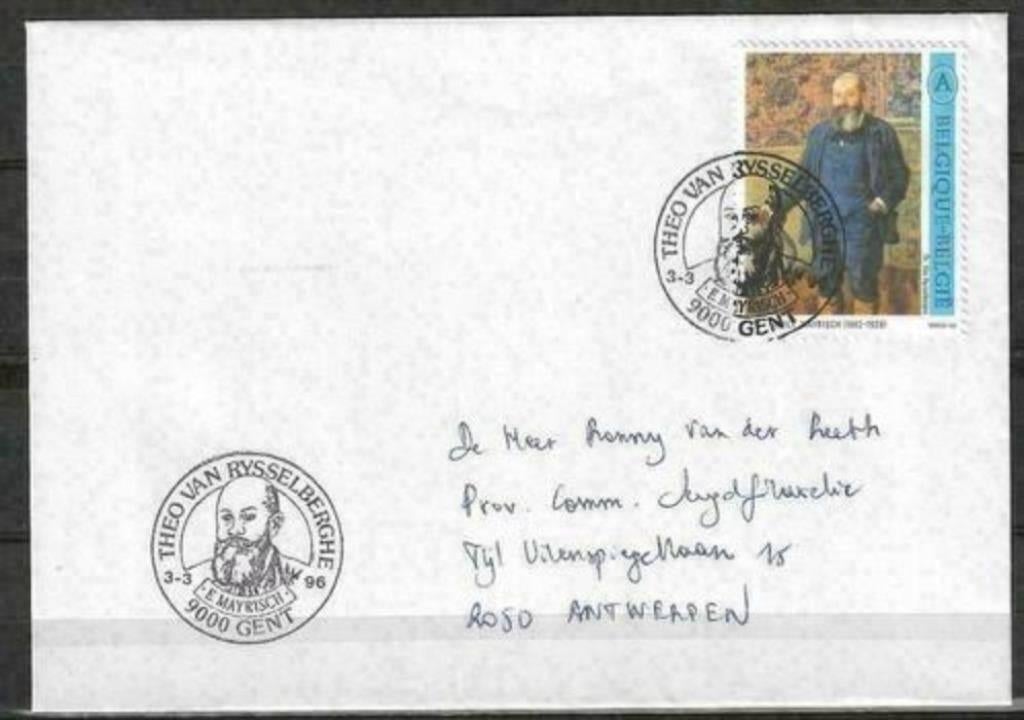 A
BELGIQUE-BELGIË
MAYRISCH (1862-1928)
THEO VAN RYSSELBERGHE
3-3
E. MAYRISCH
9000 GENT
De Heer Ronny Van der
Prov. Comm. Jeugdfilatelie
Tijl Uilenspiegellaan 15
2050 ANTWERPEN
THEO VAN RYSSELBERGHE
3-3 96
· E. MAYRISCH ·
9000 GENT